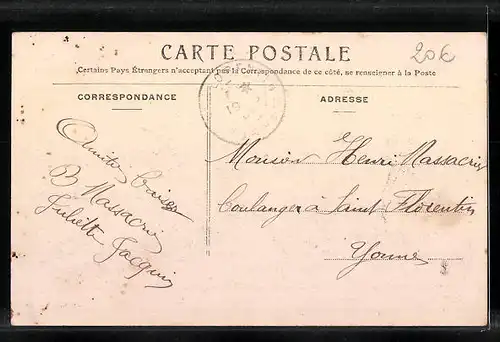 CARTE POSTALE
20€
Certains Pays Étrangers n'acceptant pas la Correspondance de ce côté, se renseigner à la Poste
CORRESPONDANCE
ADRESSE
Amitiés Baisers
B Massacrié
Juliette Jacquin
Monsieur Henri Massacrié
Boulanger à Saint Florentin
Yonne